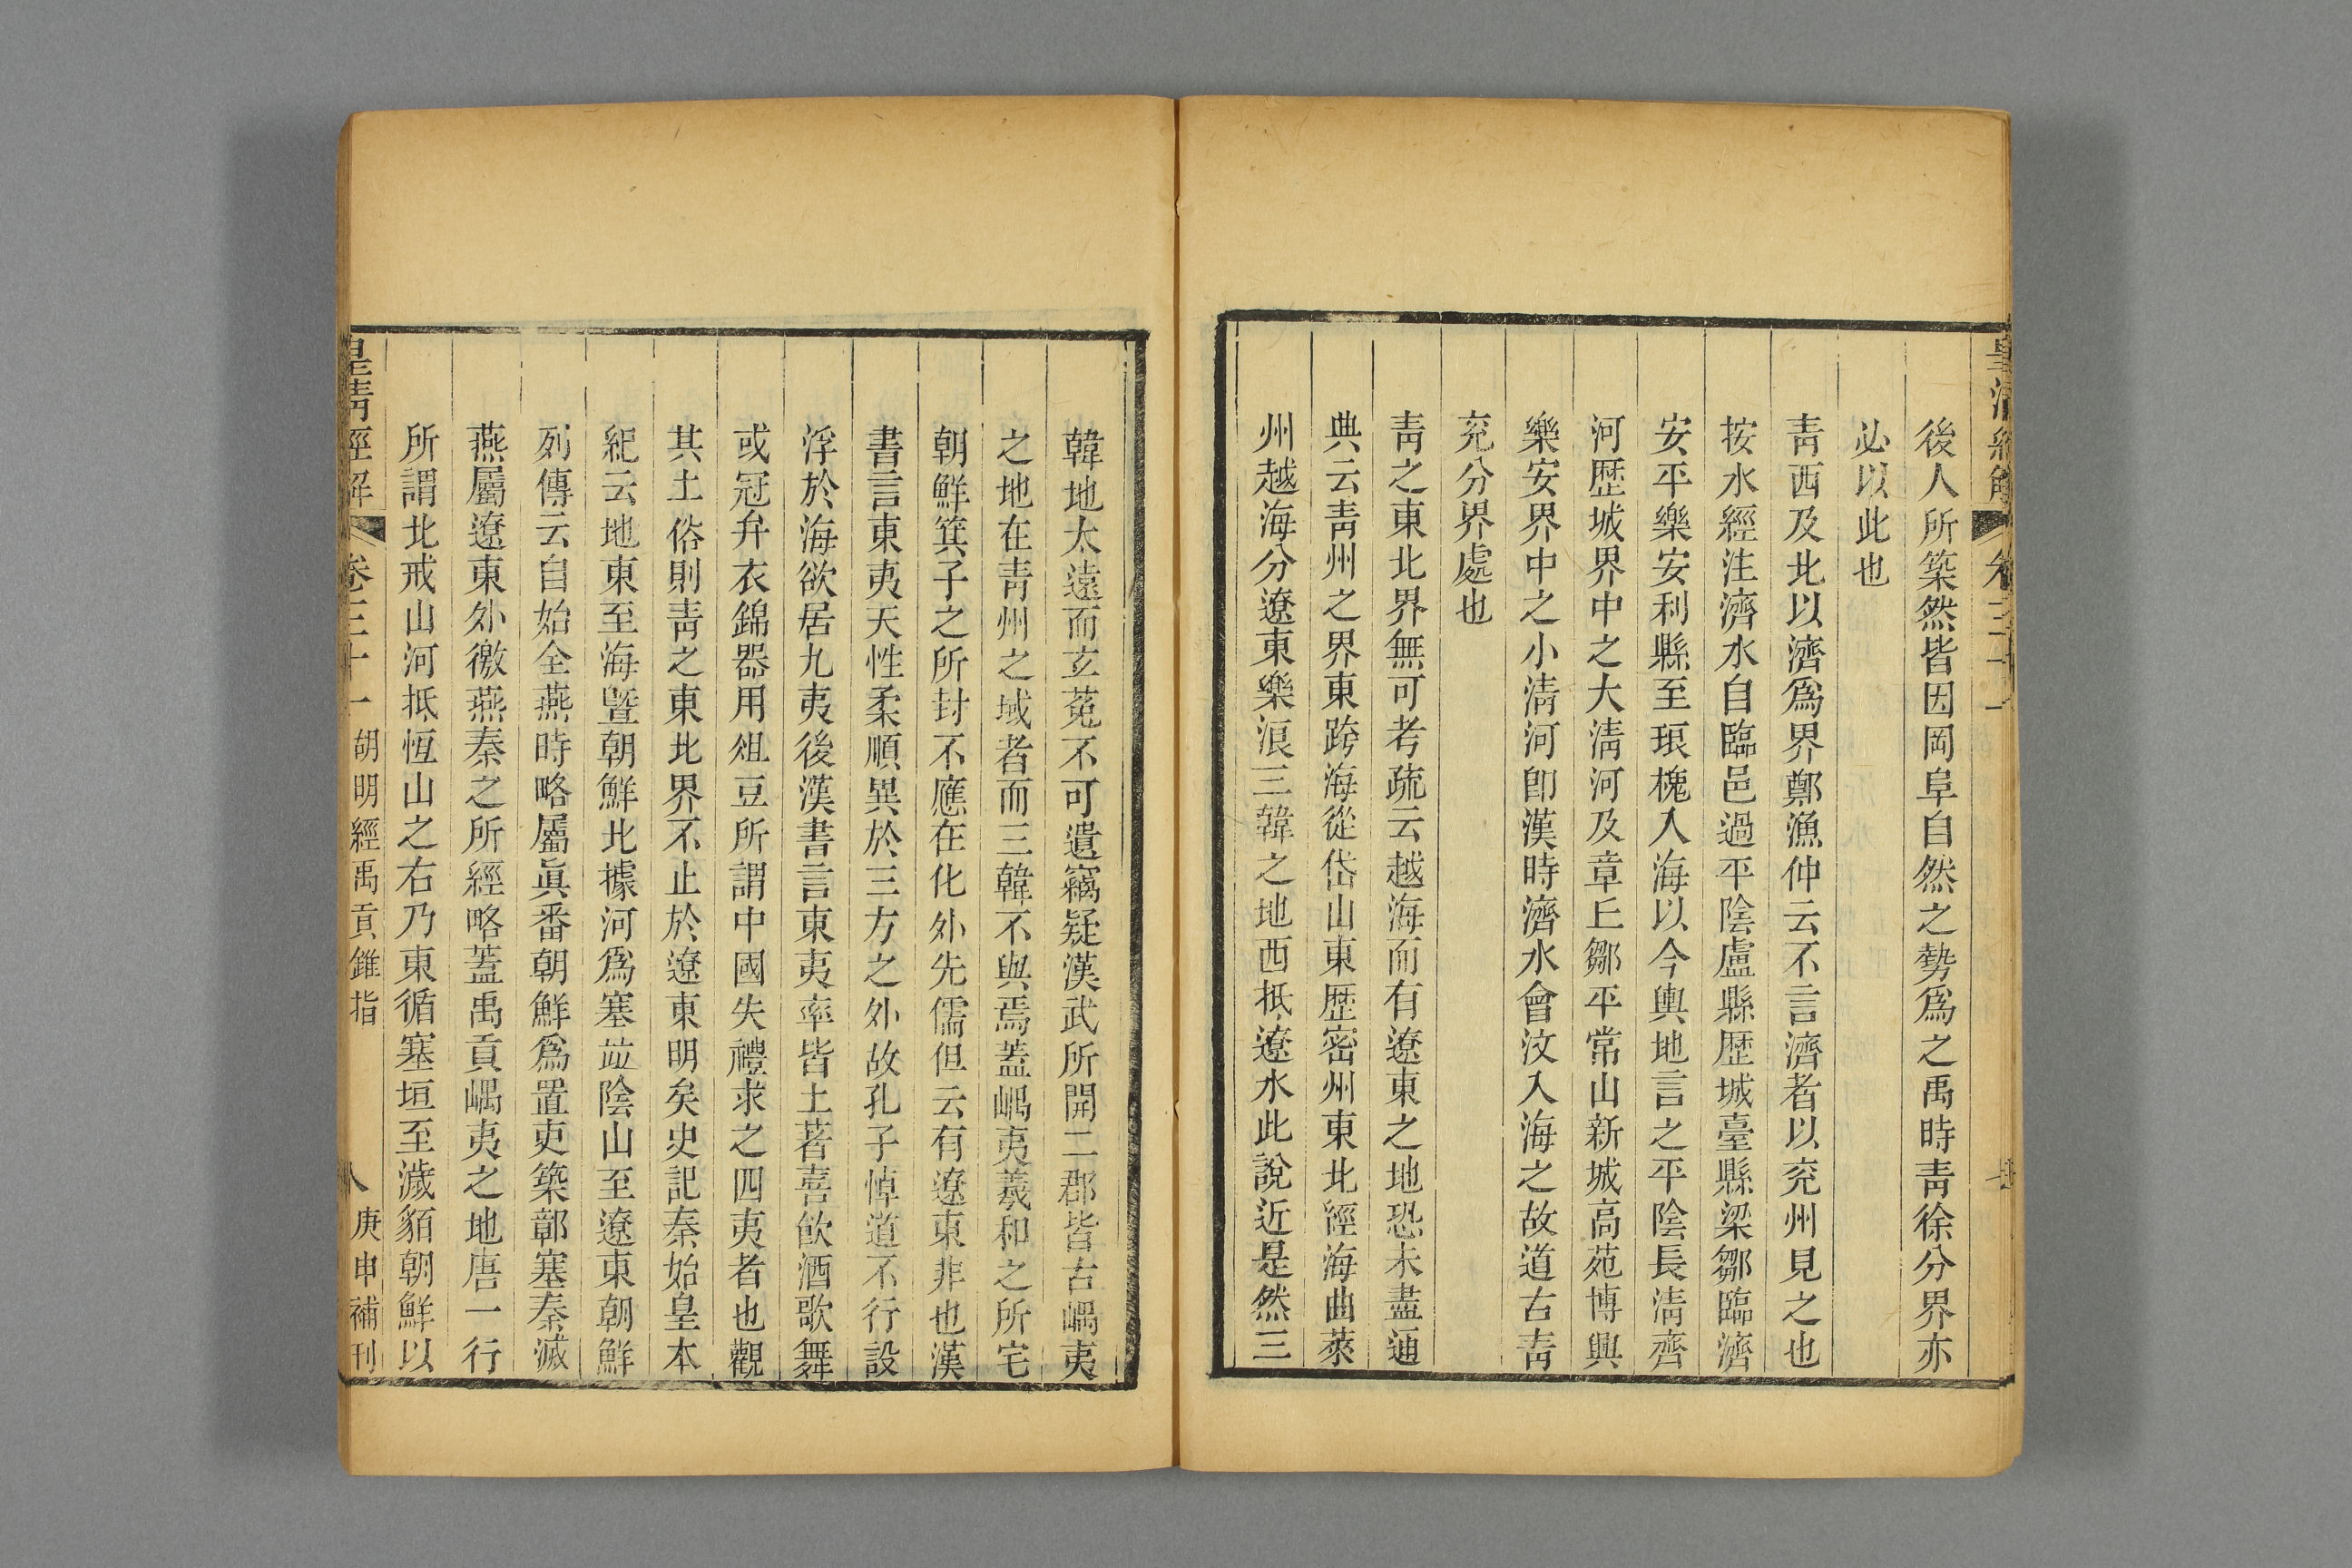 皇清經解 卷三十一
後人所築然皆因岡阜自然之勢爲之禹時靑徐分界亦
必以此也
靑西及北以濟爲界鄭漁仲云不言濟者以兖州見之也
按水經注濟水自臨邑過平陰盧縣歷城臺縣梁鄒臨濟
安平樂安利縣至琅槐入海以今輿地言之平陰長淸齊
河歷城界中之大淸河及章丘鄒平常山新城高苑博興
樂安界中之小淸河卽漢時濟水會汶入海之故道古靑
兖分界處也
靑之東北界無可考疏云越海而有遼東之地恐未盡通
典云靑州之界東跨海從岱山東歷密州東北經海曲萊
州越海分遼東樂浪三韓之地西抵遼水此說近是然三
韓地太遠而玄菟不可遺竊疑漢武所開二郡皆古嵎夷
之地在靑州之域者而三韓不與焉蓋嵎夷羲和之所宅
朝鮮箕子之所封不應在化外先儒但云有遼東非也漢
書言東夷天性柔順異於三方之外故孔子悼道不行設
浮於海欲居九夷後漢書言東夷率皆土著喜飮酒歌舞
或冠弁衣錦器用俎豆所謂中國失禮求之四夷者也觀
其土俗則靑之東北界不止於遼東明矣史記秦始皇本
紀云地東至海曁朝鮮北據河爲塞竝陰山至遼東朝鮮
列傳云自始全燕時略屬眞番朝鮮爲置吏築鄣塞秦滅
燕屬遼東外徼燕秦之所經略蓋禹貢嵎夷之地唐一行
所謂北戒山河抵恆山之右乃東循塞垣至濊貊朝鮮以
皇淸經解 卷三十一 胡明經禹貢錐指 八 庚申補刊